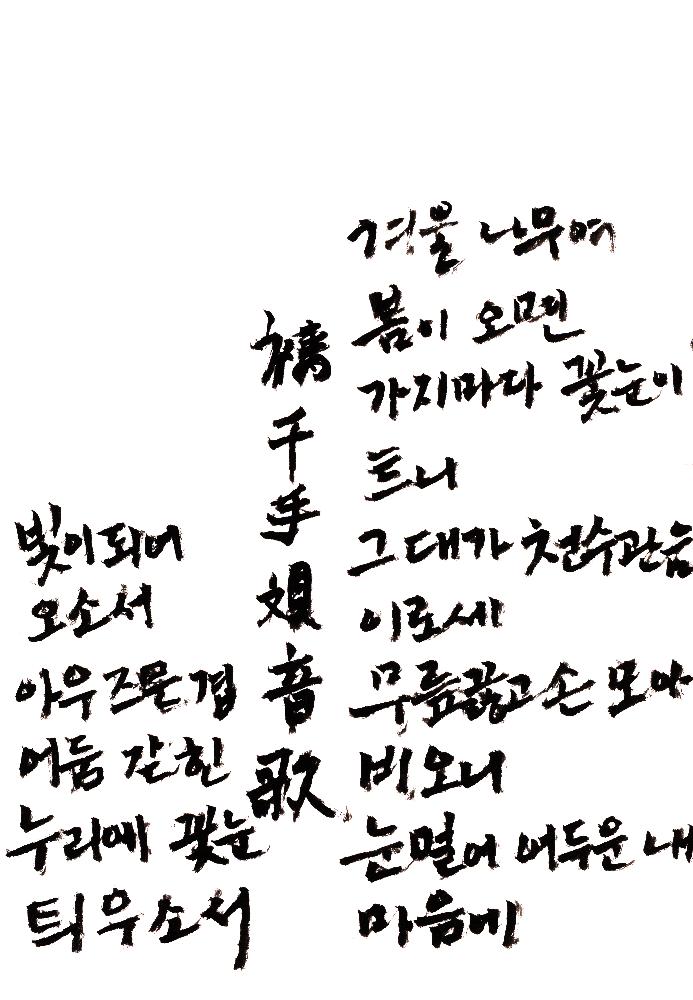 겨울 나무여
봄이 오면
가지마다 꽃눈이
트니
그대가 천수관음
이로세
무릎꿇고 손 모아
비오니
눈멀어 어두운 내
마음에
禱千手觀音歌
빛이되어
오소서
아우즈믄겹
어둠 갇힌
누리에 꽃눈
틔우소서